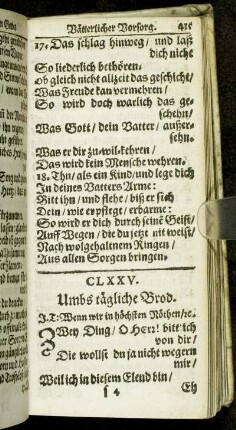 Vätterlicher Vorsorg. 415
17. Das schlag hinweg / und laß
dich nicht
So liederlich bethören.
ob gleich nicht allzeit das geschicht /
Was Freude kan vermehren /
So wird doch warlich das ge-
schehn /
Was Gott / dein Vatter / außer-
sehn.
Was er dir zu-wil-kehren /
Das wird kein Mensche wehren.
18. Thu / als ein Kind / und lege dich
In deines Vatters Arme:
Bitt ihn / und flehe / biß er sich
Dein / wie er pflegt / erbarme:
So wird er dich durch seinē Geist /
Auff Wegen / die du jetzt nit weist /
Nach wolgehaltnem Ringen /
Aus allen Sorgen bringen.
CLXXV.
Umbs tägliche Brod.
J.T: Wenn wir in höchsten Nöthen / ꝛc.
Zwey Ding / O Herr! bitt ich
von dir /
Die wollst du ja nicht wegern
mir /
Weil ich in diesem Elend bin /
f 4 Eh